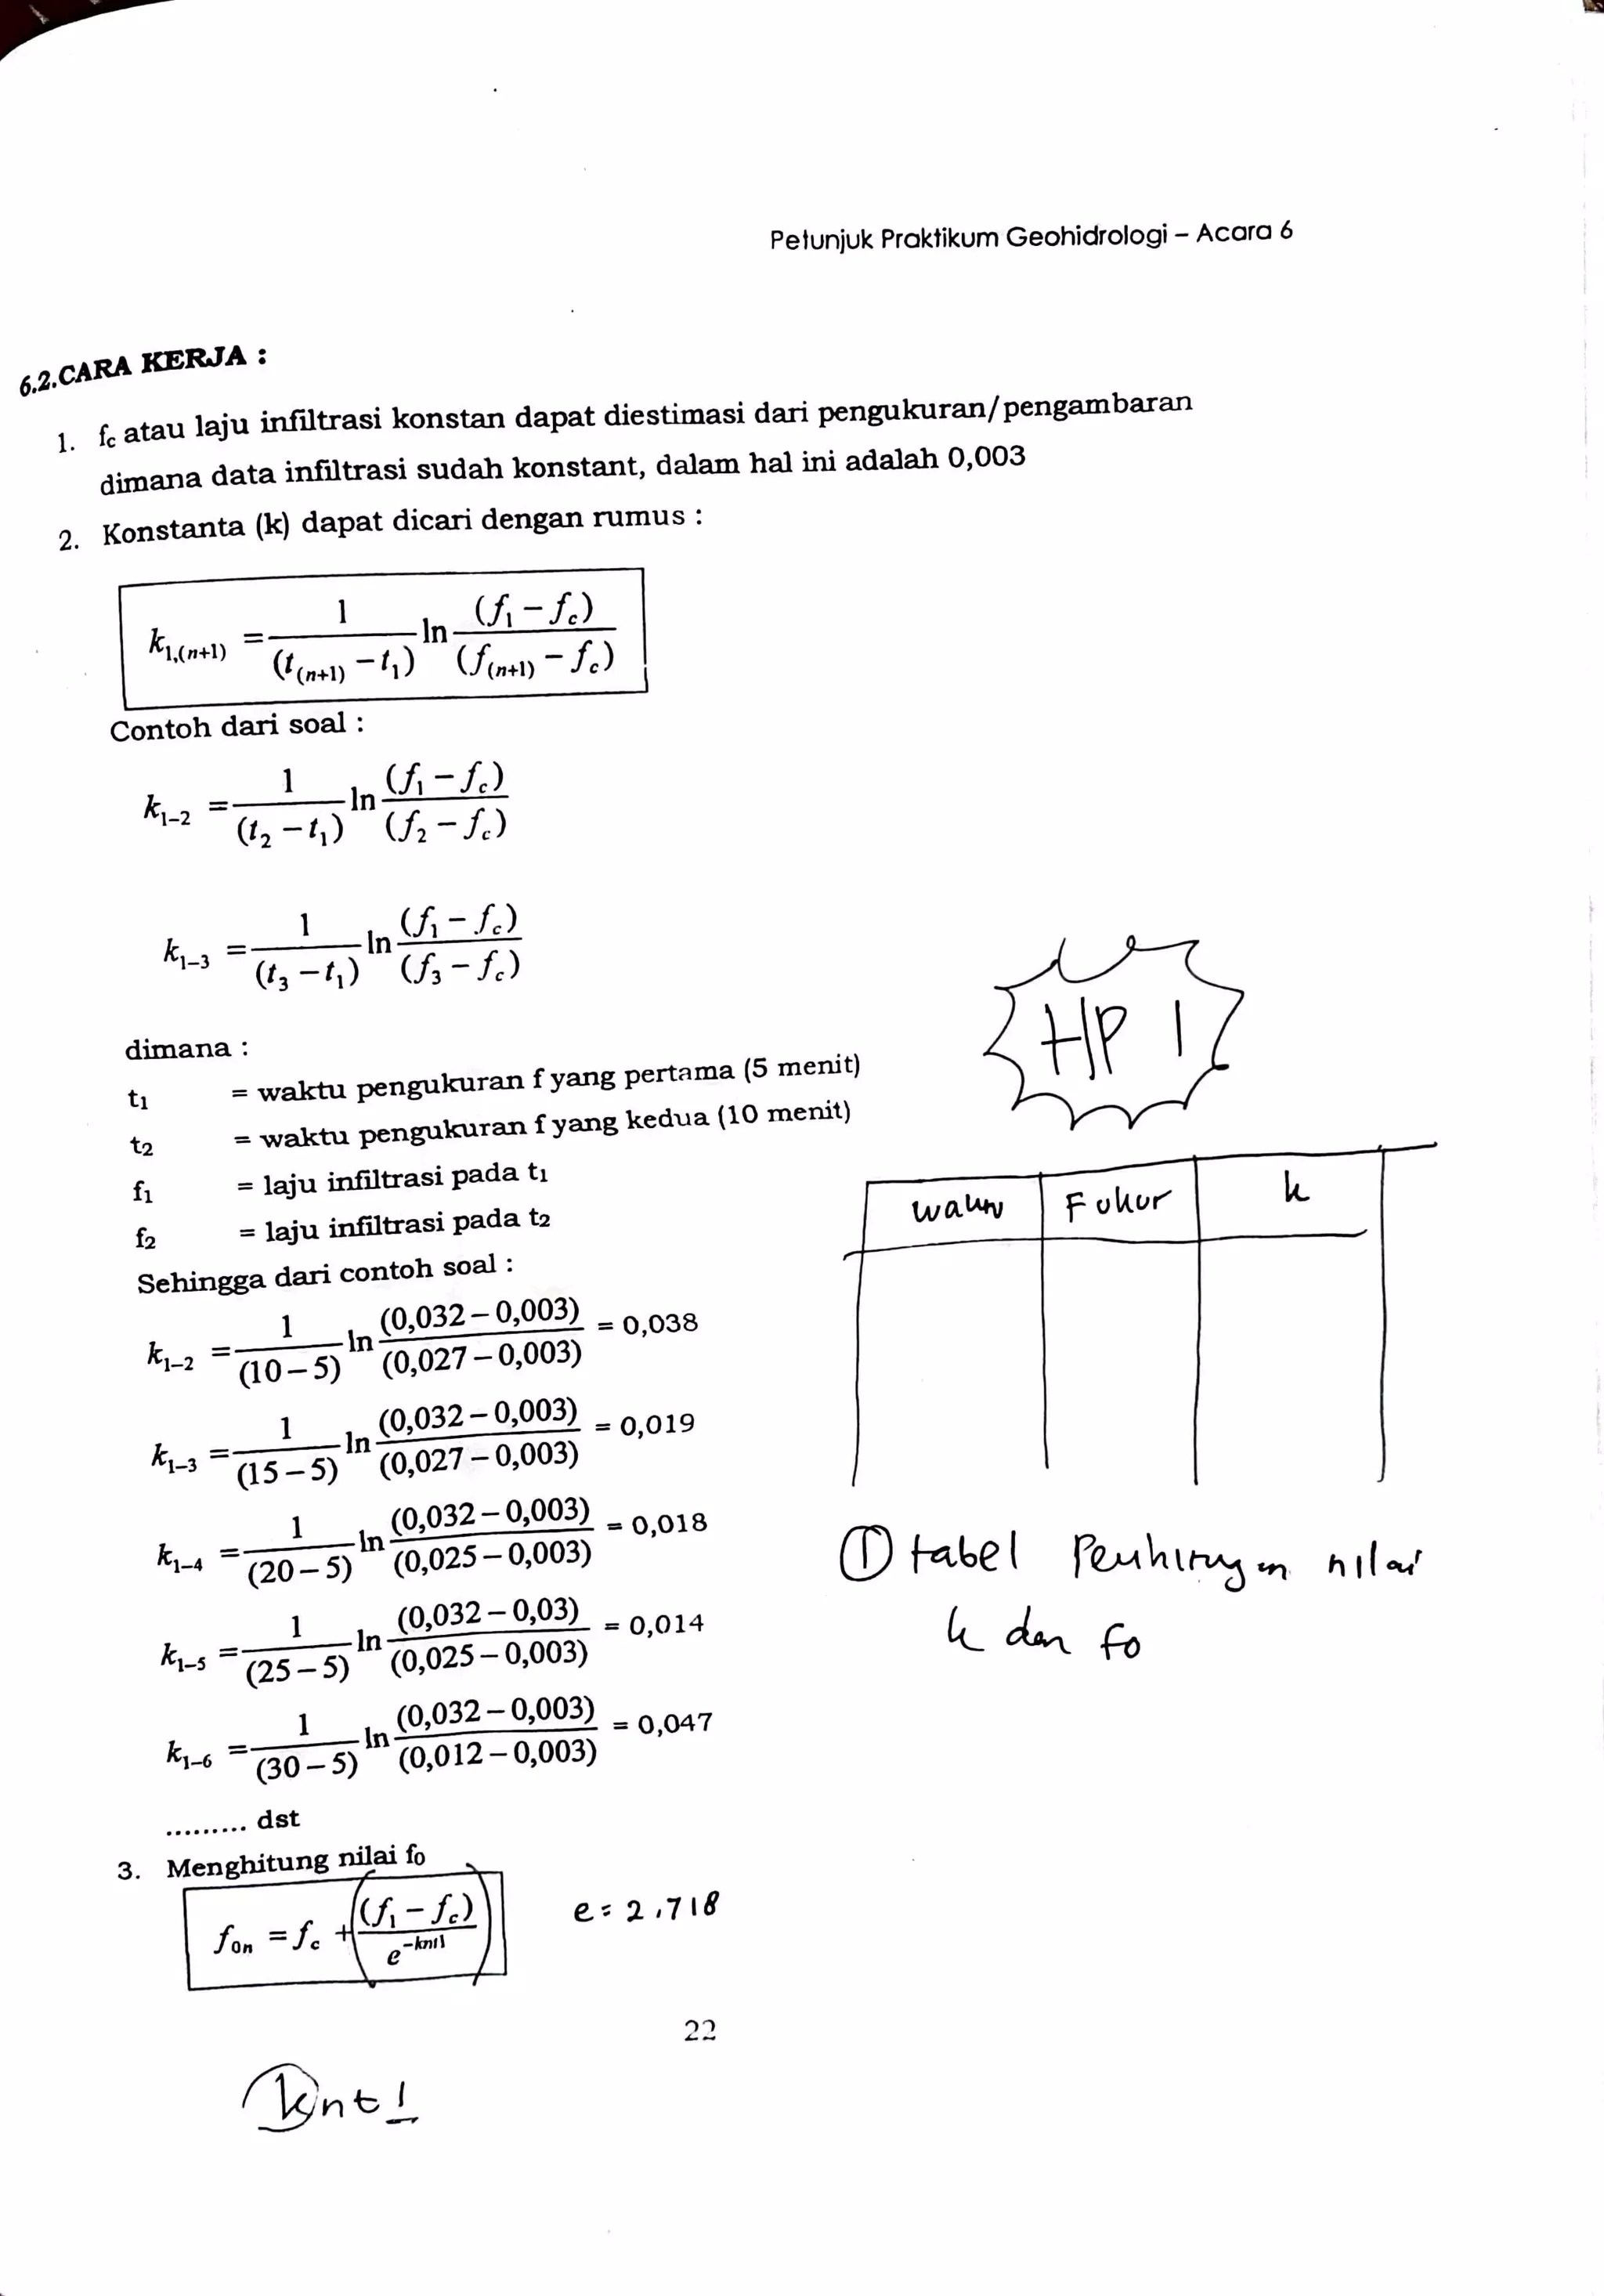 Petunjuk Praktikum Geohidrologi – Acara 6
6.2.CARA KERJA :
1. fc atau laju infiltrasi konstan dapat diestimasi dari pengukuran/pengambaran
dimana data infiltrasi sudah konstant, dalam hal ini adalah 0,003
2. Konstanta (k) dapat dicari dengan rumus :
k1,(n+1) = 1/(t(n+1) – t1) ln (f1 – fc)/(f(n+1) – fc)
Contoh dari soal :
k1–2 = 1/(t2 – t1) ln (f1 – fc)/(f2 – fc)
k1–3 = 1/(t3 – t1) ln (f1 – fc)/(f3 – fc)
HP 1
dimana :
t1 = waktu pengukuran f yang pertama (5 menit)
t2 = waktu pengukuran f yang kedua (10 menit)
f1 = laju infiltrasi pada t1
f2 = laju infiltrasi pada t2
F ukur k
Sehingga dari contoh soal :
k1–2 = 1/(10 – 5) ln (0,032 – 0,003)/(0,027 – 0,003) = 0,038
k1–3 = 1/(15 – 5) ln (0,032 – 0,003)/(0,027 – 0,003) = 0,019
k1–4 = 1/(20 – 5) ln (0,032 – 0,003)/(0,025 – 0,003) = 0,018
k1–5 = 1/(25 – 5) ln (0,032 – 0,03)/(0,025 – 0,003) = 0,014
k1–6 = 1/(30 – 5) ln (0,032 – 0,003)/(0,012 – 0,003) = 0,047
......... dst
① tabel nilai
k dan fo
3. Menghitung nilai f0
fon = fc + ((f1 – fc)/e^–knt1)
e = 2,718
22
knt1